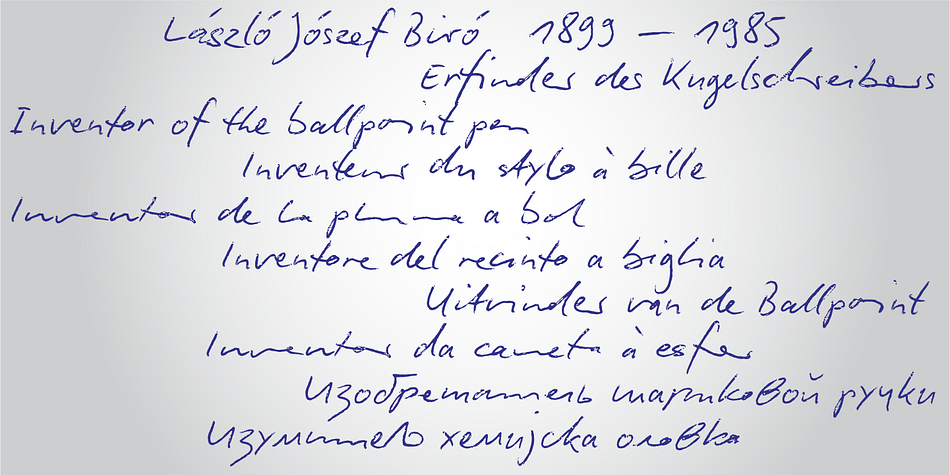 László József Biró 1899 – 1985
Erfinder des Kugelschreibers
Inventor of the ballpoint pen
Inventeur du stylo à bille
Inventor de la pluma a bol
Inventore del recinto a biglia
Uitvinder van de Ballpoint
Inventor da caneta à esfer
Изобретатель шариковой ручки
Изумитељ хемијска оловка